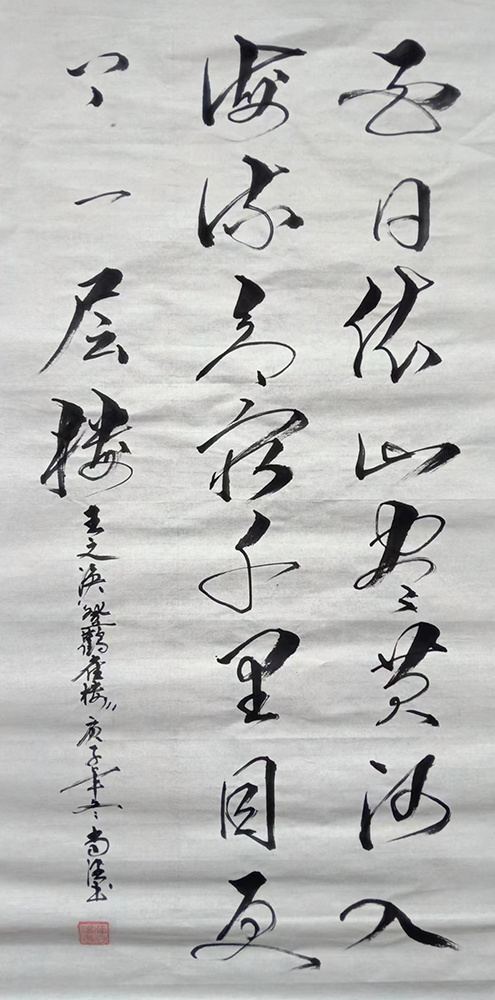 白日依山尽黄河入
海流欲穷千里目更
上一层楼 王之涣登鹳雀楼 庚子年冬